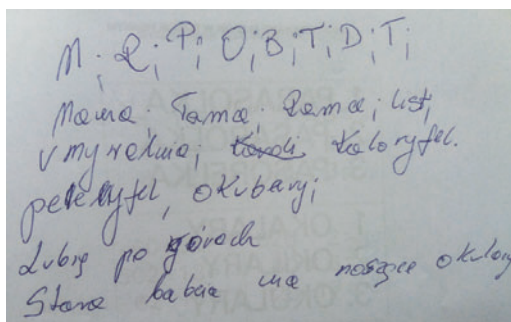 M; R; P; O; B; T; D; T;
Mama; Tama; Rama; list;
umyralnia; kaloryfel.
peleryfel, okubary;
Lubię po górach
Stara babcia ma noszące okulary